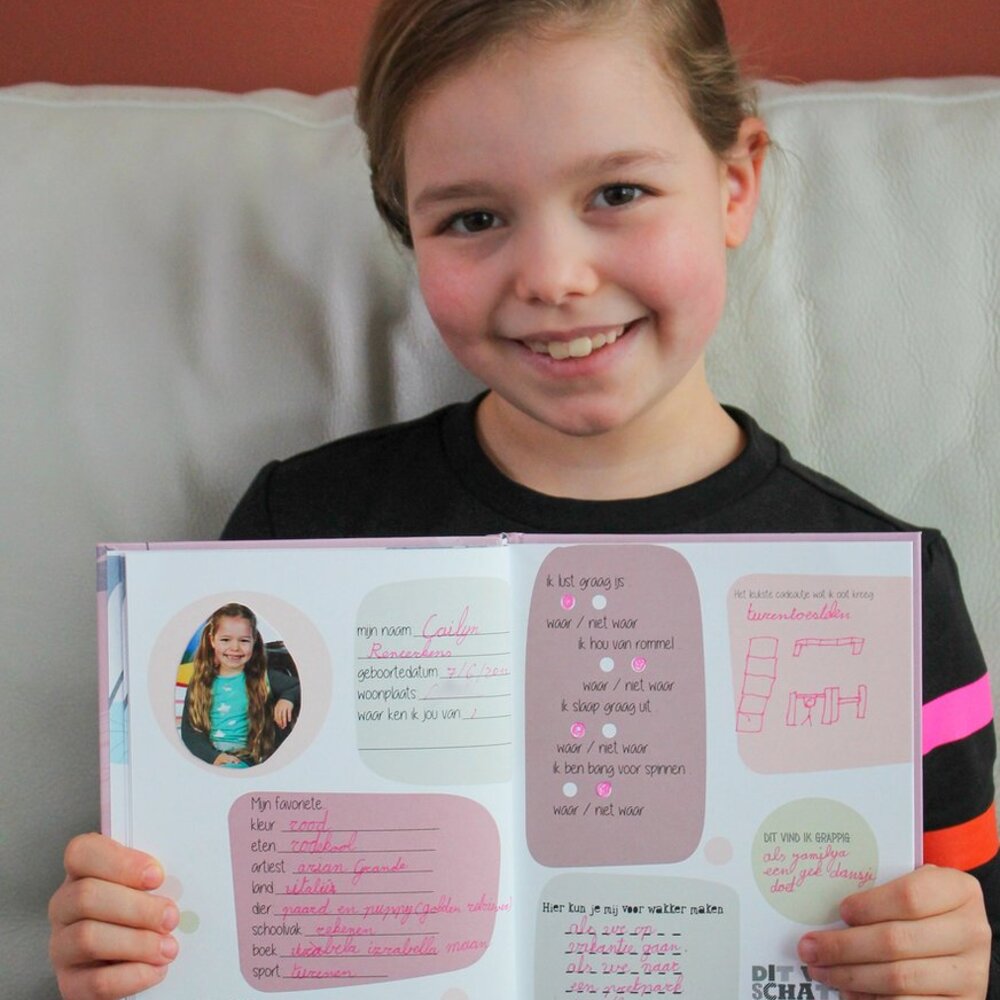 mijn naam Cailyn
Renierkens
geboortedatum 7/6/
woonplaats
waar ken ik jou van
Mijn favoriete
kleur rood
eten rodekool
artiest arian Grande
land italiës
dier paard en puppy (golden retriever)
schoolvak rekenen
boek izabella maan
sport turenen
ik lust graag ijs
waar / niet waar
ik hou van rommel
waar / niet waar
ik slaap graag uit
waar / niet waar
ik ben bang voor spinnen
waar / niet waar
Hier kun je mij voor wakker maken
als we op
vakantie gaan.
als we naar
een pretpark
Het leukste cadeautje wat ik ooit kreeg
turentoestelen
DIT VIND IK GRAPPIG
als yanilya
een gek dansje
doet
DIT
SCHAT